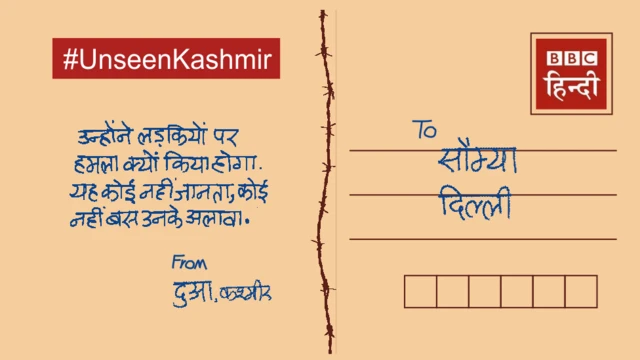 #UnseenKashmir
उन्होंने लड़कियों पर
हमला क्यों किया होगा.
यह कोई नहीं जानता, कोई
नहीं बस उनके अलावा.
From
दुआ, कश्मीर
BBC
हिन्दी
To
सौम्या
दिल्ली